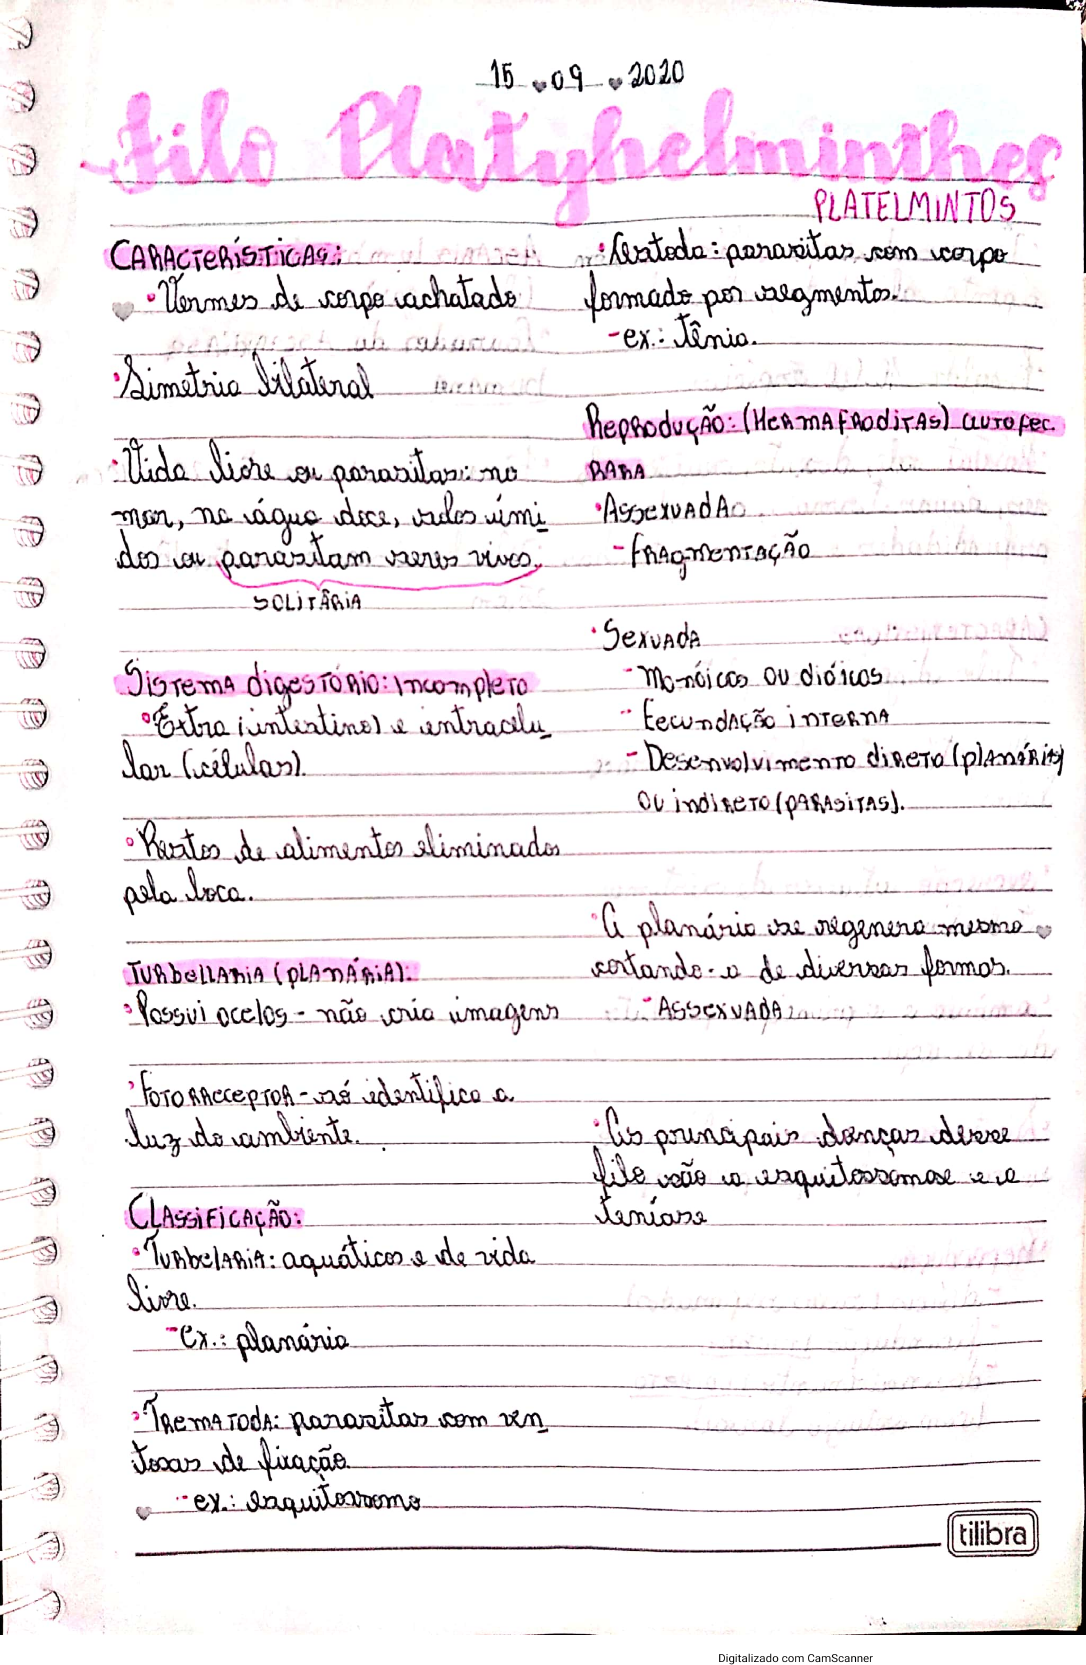 15 09 2020
Filo Platyhelminthes
PLATELMINTOS
CARACTERÍSTICAS:
• Vermes de corpo achatado
• Simetria bilateral
• Vida livre ou parasitas: no
mar, na água doce, solos úmi
dos ou parasitam seres vivos.
SOLITÁRIA
Sistema digestório: Incompleto
• Extra (intestino) e intracelu
lar (células).
• Restos de alimentos eliminados
pela boca.
TURBELLARIA (PLANÁRIA):
• Possui ocelos - não cria imagens
• FOTORRECEPTOR - só identifica a
luz do ambiente.
CLASSIFICAÇÃO:
• TURBELARIA: aquáticos e de vida
livre.
- ex.: planária
• TREMATODA: parasitas com ven
tosas de fixação.
- ex.: esquitossomo
• Cestoda: parasitas com corpo
formado por segmentos.
- ex.: tênia.
Reprodução: (HERMAFRODITAS) autofec.
RARA
• ASSEXUADA
- FRAGMENTAÇÃO
• SEXUADA
- Monóicos OU dióicos
- Fecundação interna
- Desenvolvimento direto (planária)
OU indireto (PARASITAS).
• A planária se regenera mesmo
cortando-a de diversas formas.
- ASSEXUADA
• As principais doenças desse
filo são a esquitossomose e a
teníase
tilibra
Digitalizado com CamScanner